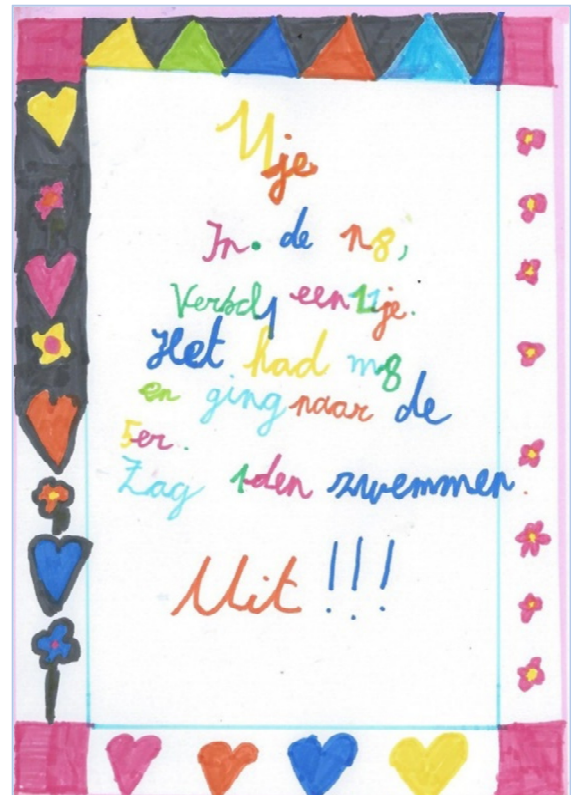 11je
In. de n8,
een 11je.
Het had m8
en ging naar de
5er.
Zag 1den zwemmen.
Uit !!!